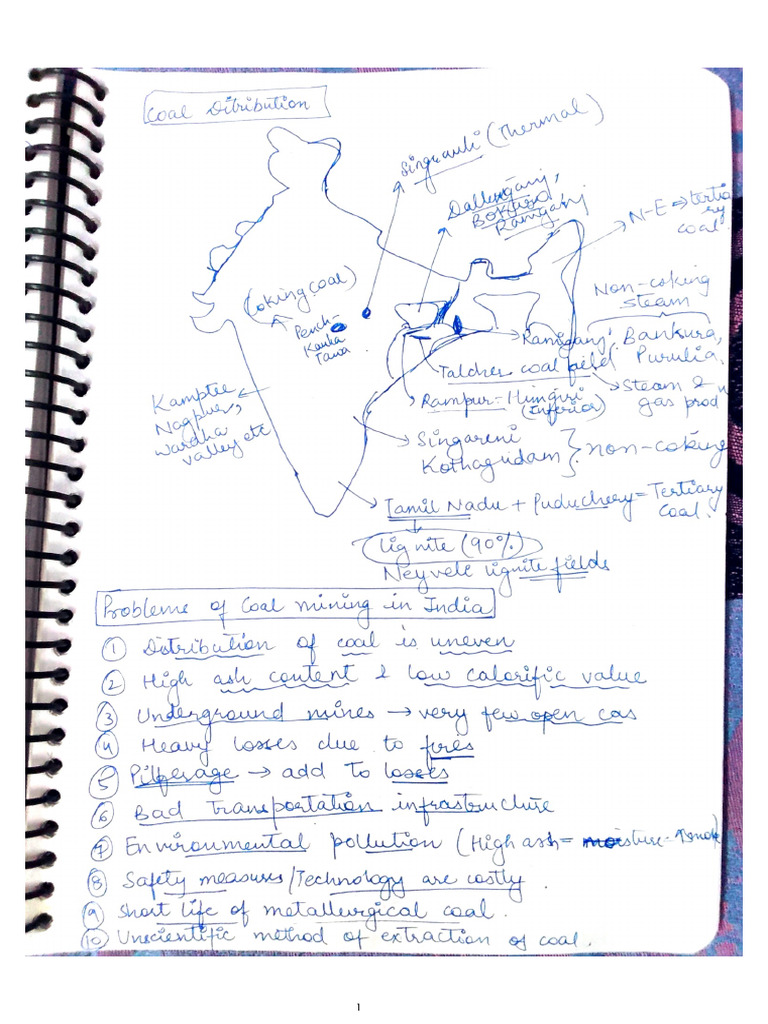 Coal Ditribution
Singrauli (Thermal)
Daltenganj,
Bokaro
Raniganj
N-E ⇒ tertia
ry
coal
(oking coal)
Pench-
Kanha
Tawa
Non-coking
steam
Raniganj, Bankura,
Purulia
Talcher coal field
Steam &
gas prod
Rampur-Himgiri
(Inferior)
Kamptee
Nagpur,
Wardha
valley etc
Singareni
Kothagudam } non-coking
Tamil Nadu + Puduchery = Tertiary
coal.
lignite (90%)
Neyveli lignite fields
Problems of Coal mining in India
① Distribution of coal is uneven
② High ash content & low calorific value
③ Underground mines → very few open cas
④ Heavy losses due to fires
⑤ Pilferage → add to losses
⑥ Bad transportation infrastructure
⑦ Environmental pollution (High ash = moisture -
⑧ Safety measures/Technology are costly.
⑨ Short life of metallurgical coal.
⑩ Unscientific method of extraction of coal.
1